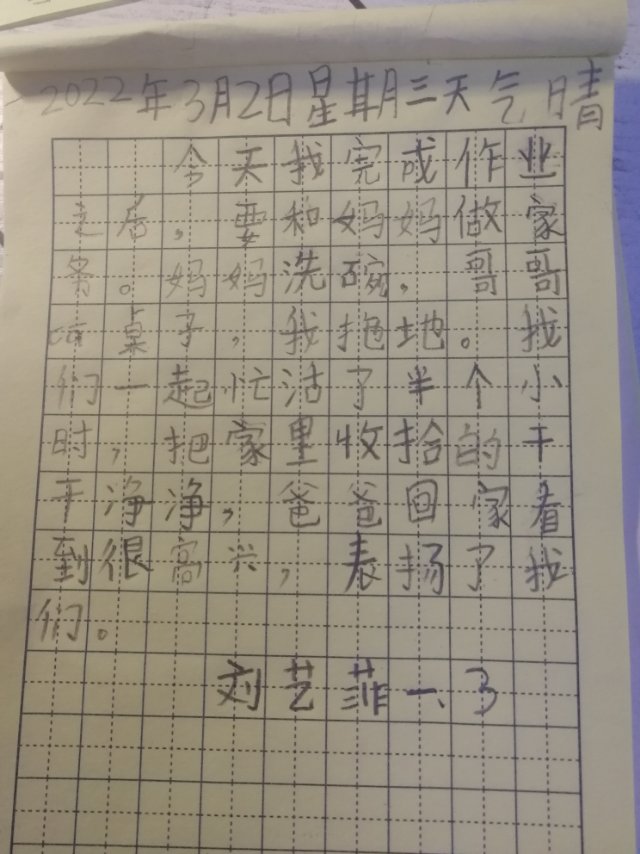 2022年3月2日星期三天气晴
今天我完成作业
之后，要和妈妈做家
务。妈妈洗碗，哥哥
桌子，我拖地。我
们一起忙活了半个小
时，把家里收拾的干
干净净，爸爸回家看
到很高兴，表扬了我
们。
刘艺菲一、3